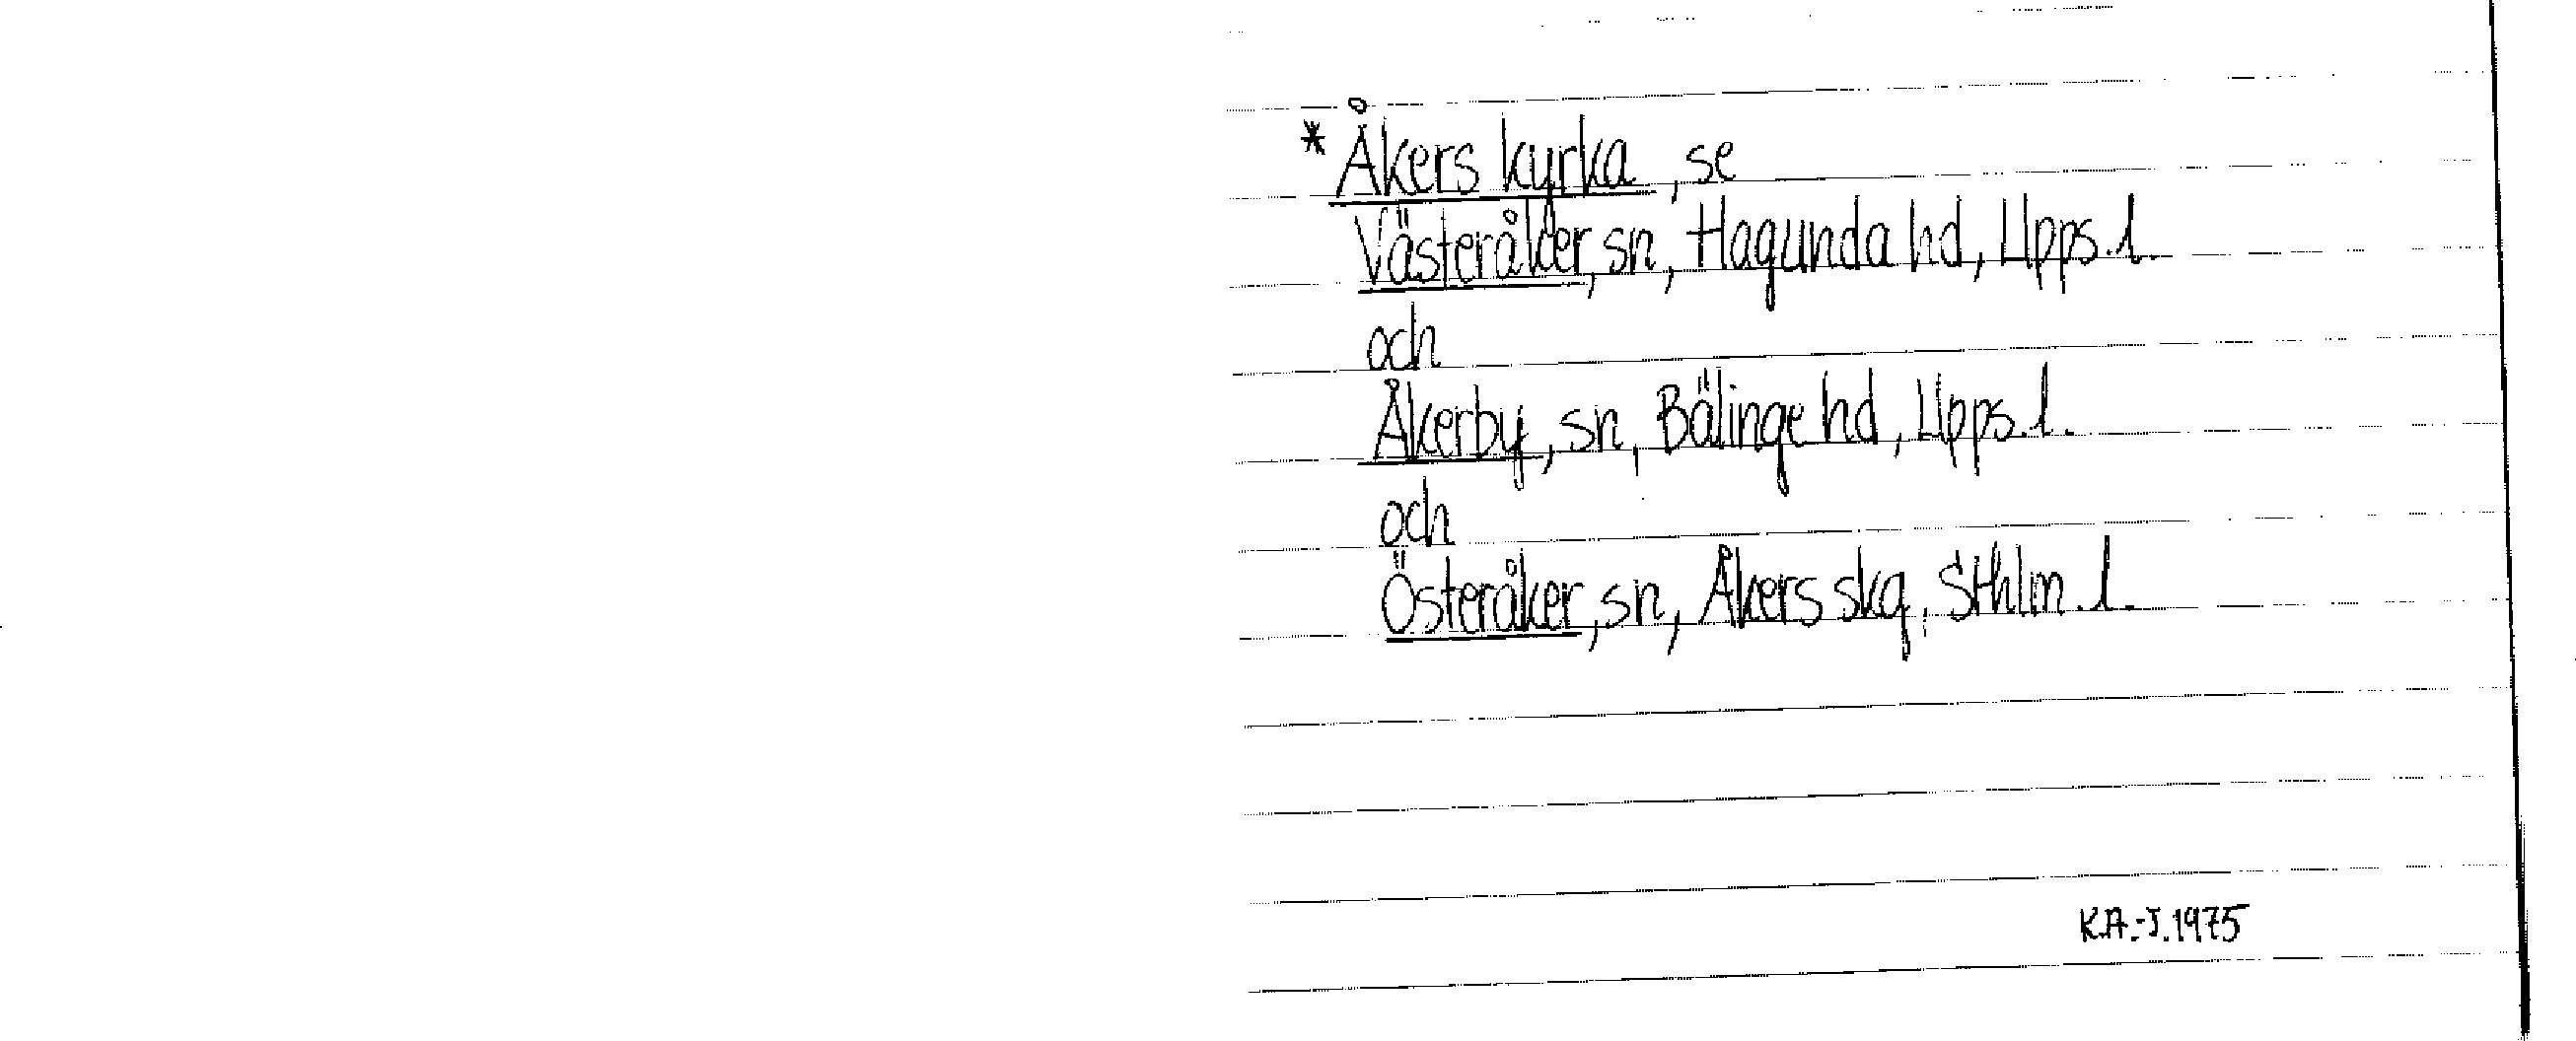 * Åkers kyrka, se
Västeråker, sn, Hagunda hd, Upps. l.
och
Åkerby, sn, Bälinge hd, Upps. l.
och
Österåker, sn, Åkers skg, Sthlm. l.
K.A.-J. 1975